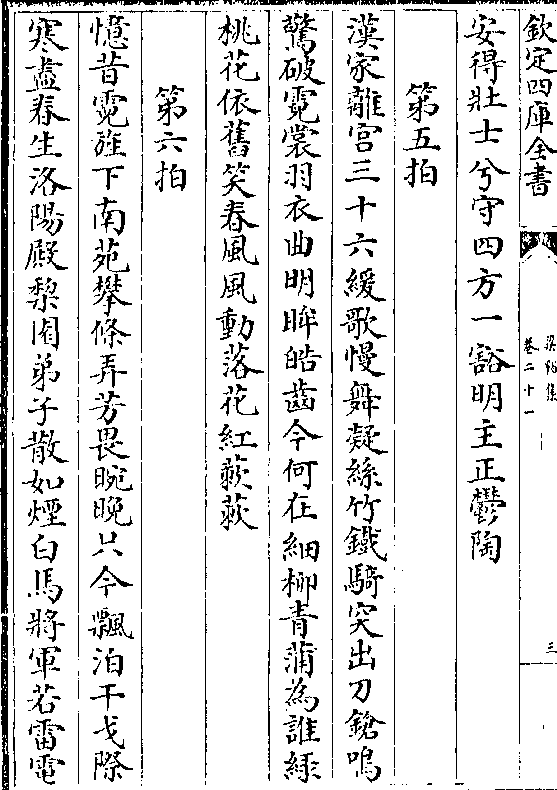 欽定四庫全書
梁谿集
卷二十一
三
安得壯士兮守四方一豁明主正鬱陶
第五拍
漢家離宮三十六緩歌慢舞凝絲竹鐵騎突出刀鎗鳴
驚破霓裳羽衣曲明眸皓齒今何在細柳青蒲為誰綠
桃花依舊笑春風風動落花紅蔌蔌
第六拍
憶昔霓旌下南苑攀條弄芳畏晼晚只今飄泊干戈際
寒盡春生洛陽殿棃園弟子散如煙白馬將軍若雷電